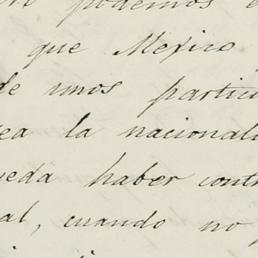 podemos
que Mexico
de unos partic
ea la nacionali
ueda haber cont
al, cuando no